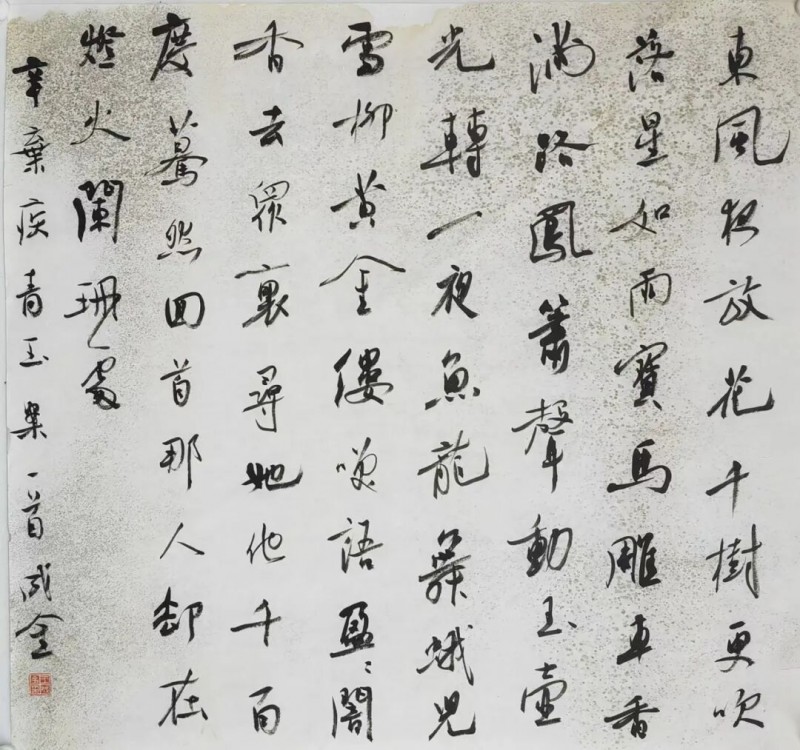 東風夜放花千樹更吹
落星如雨寶馬雕車香
滿路鳳簫聲動玉壺
光轉一夜魚龍舞蛾兒
雪柳黃金縷咲語盈〻闇
香去眾裏尋她他千百
度驀然回首那人却在
燈火闌珊處
辛棄疾青玉案一首 成金